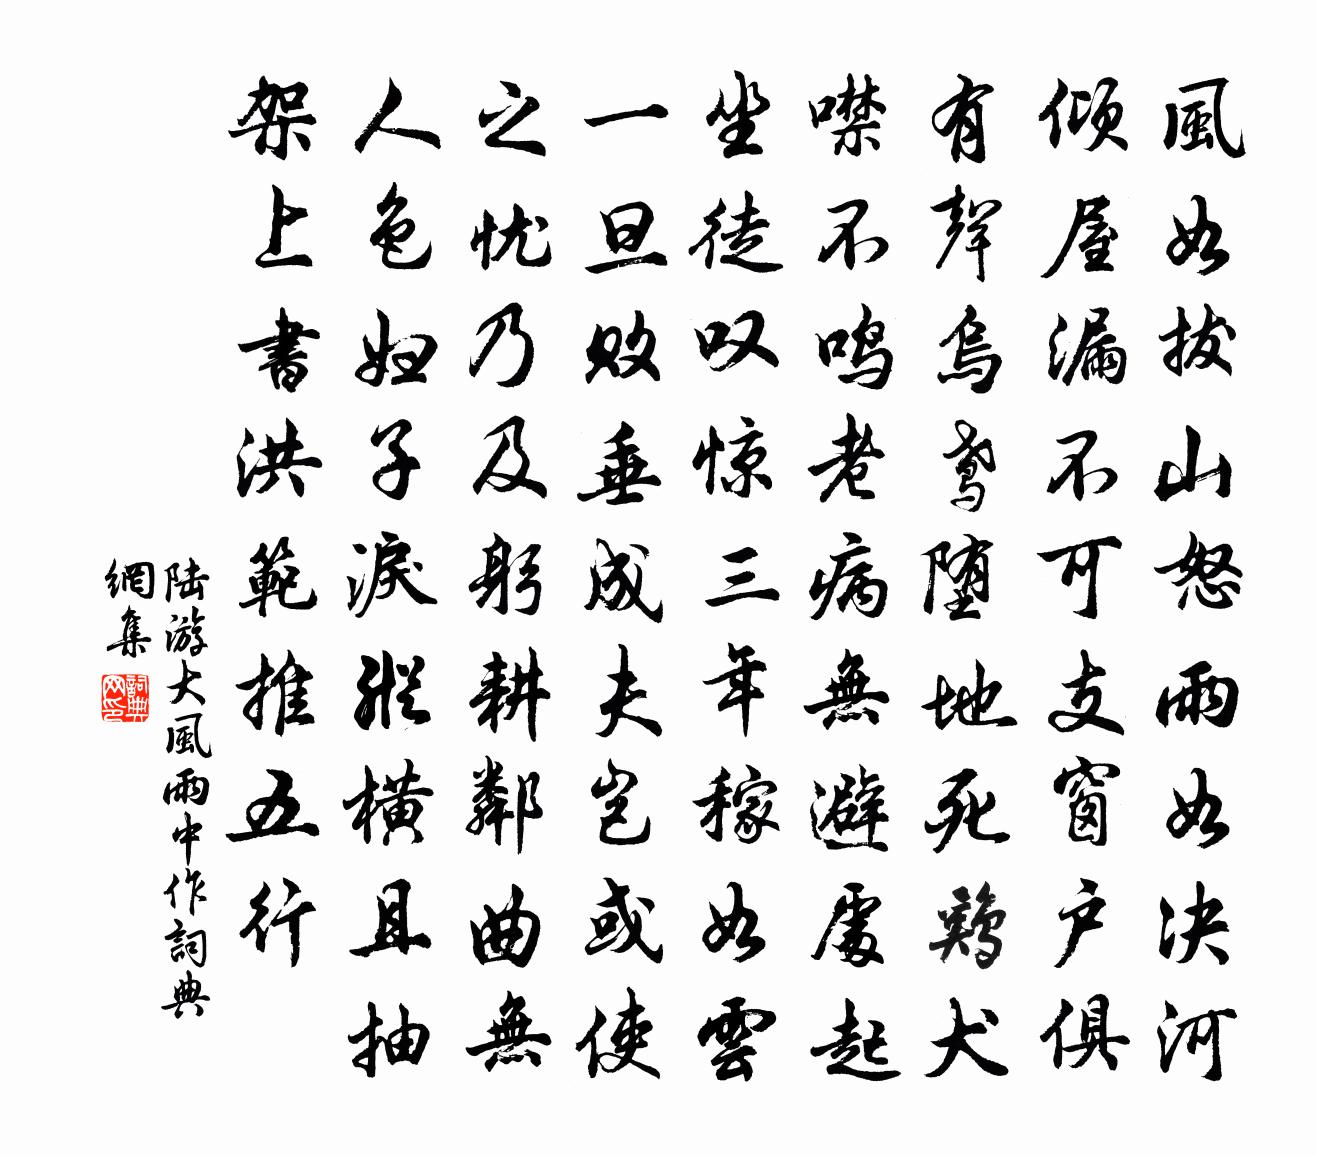 風如拔山怒雨如決河
傾屋漏不可支窗户俱
有聲烏鸢堕地死鷄犬
噤不鸣老病無避處起
坐徒叹惊三年稼如雲
一旦败垂成夫岂或使
之忧乃及躬耕鄰曲無
人色妇子淚縱横且抽
架上書洪範推五行
陆游大風雨中作詞典
網集
詞典网印